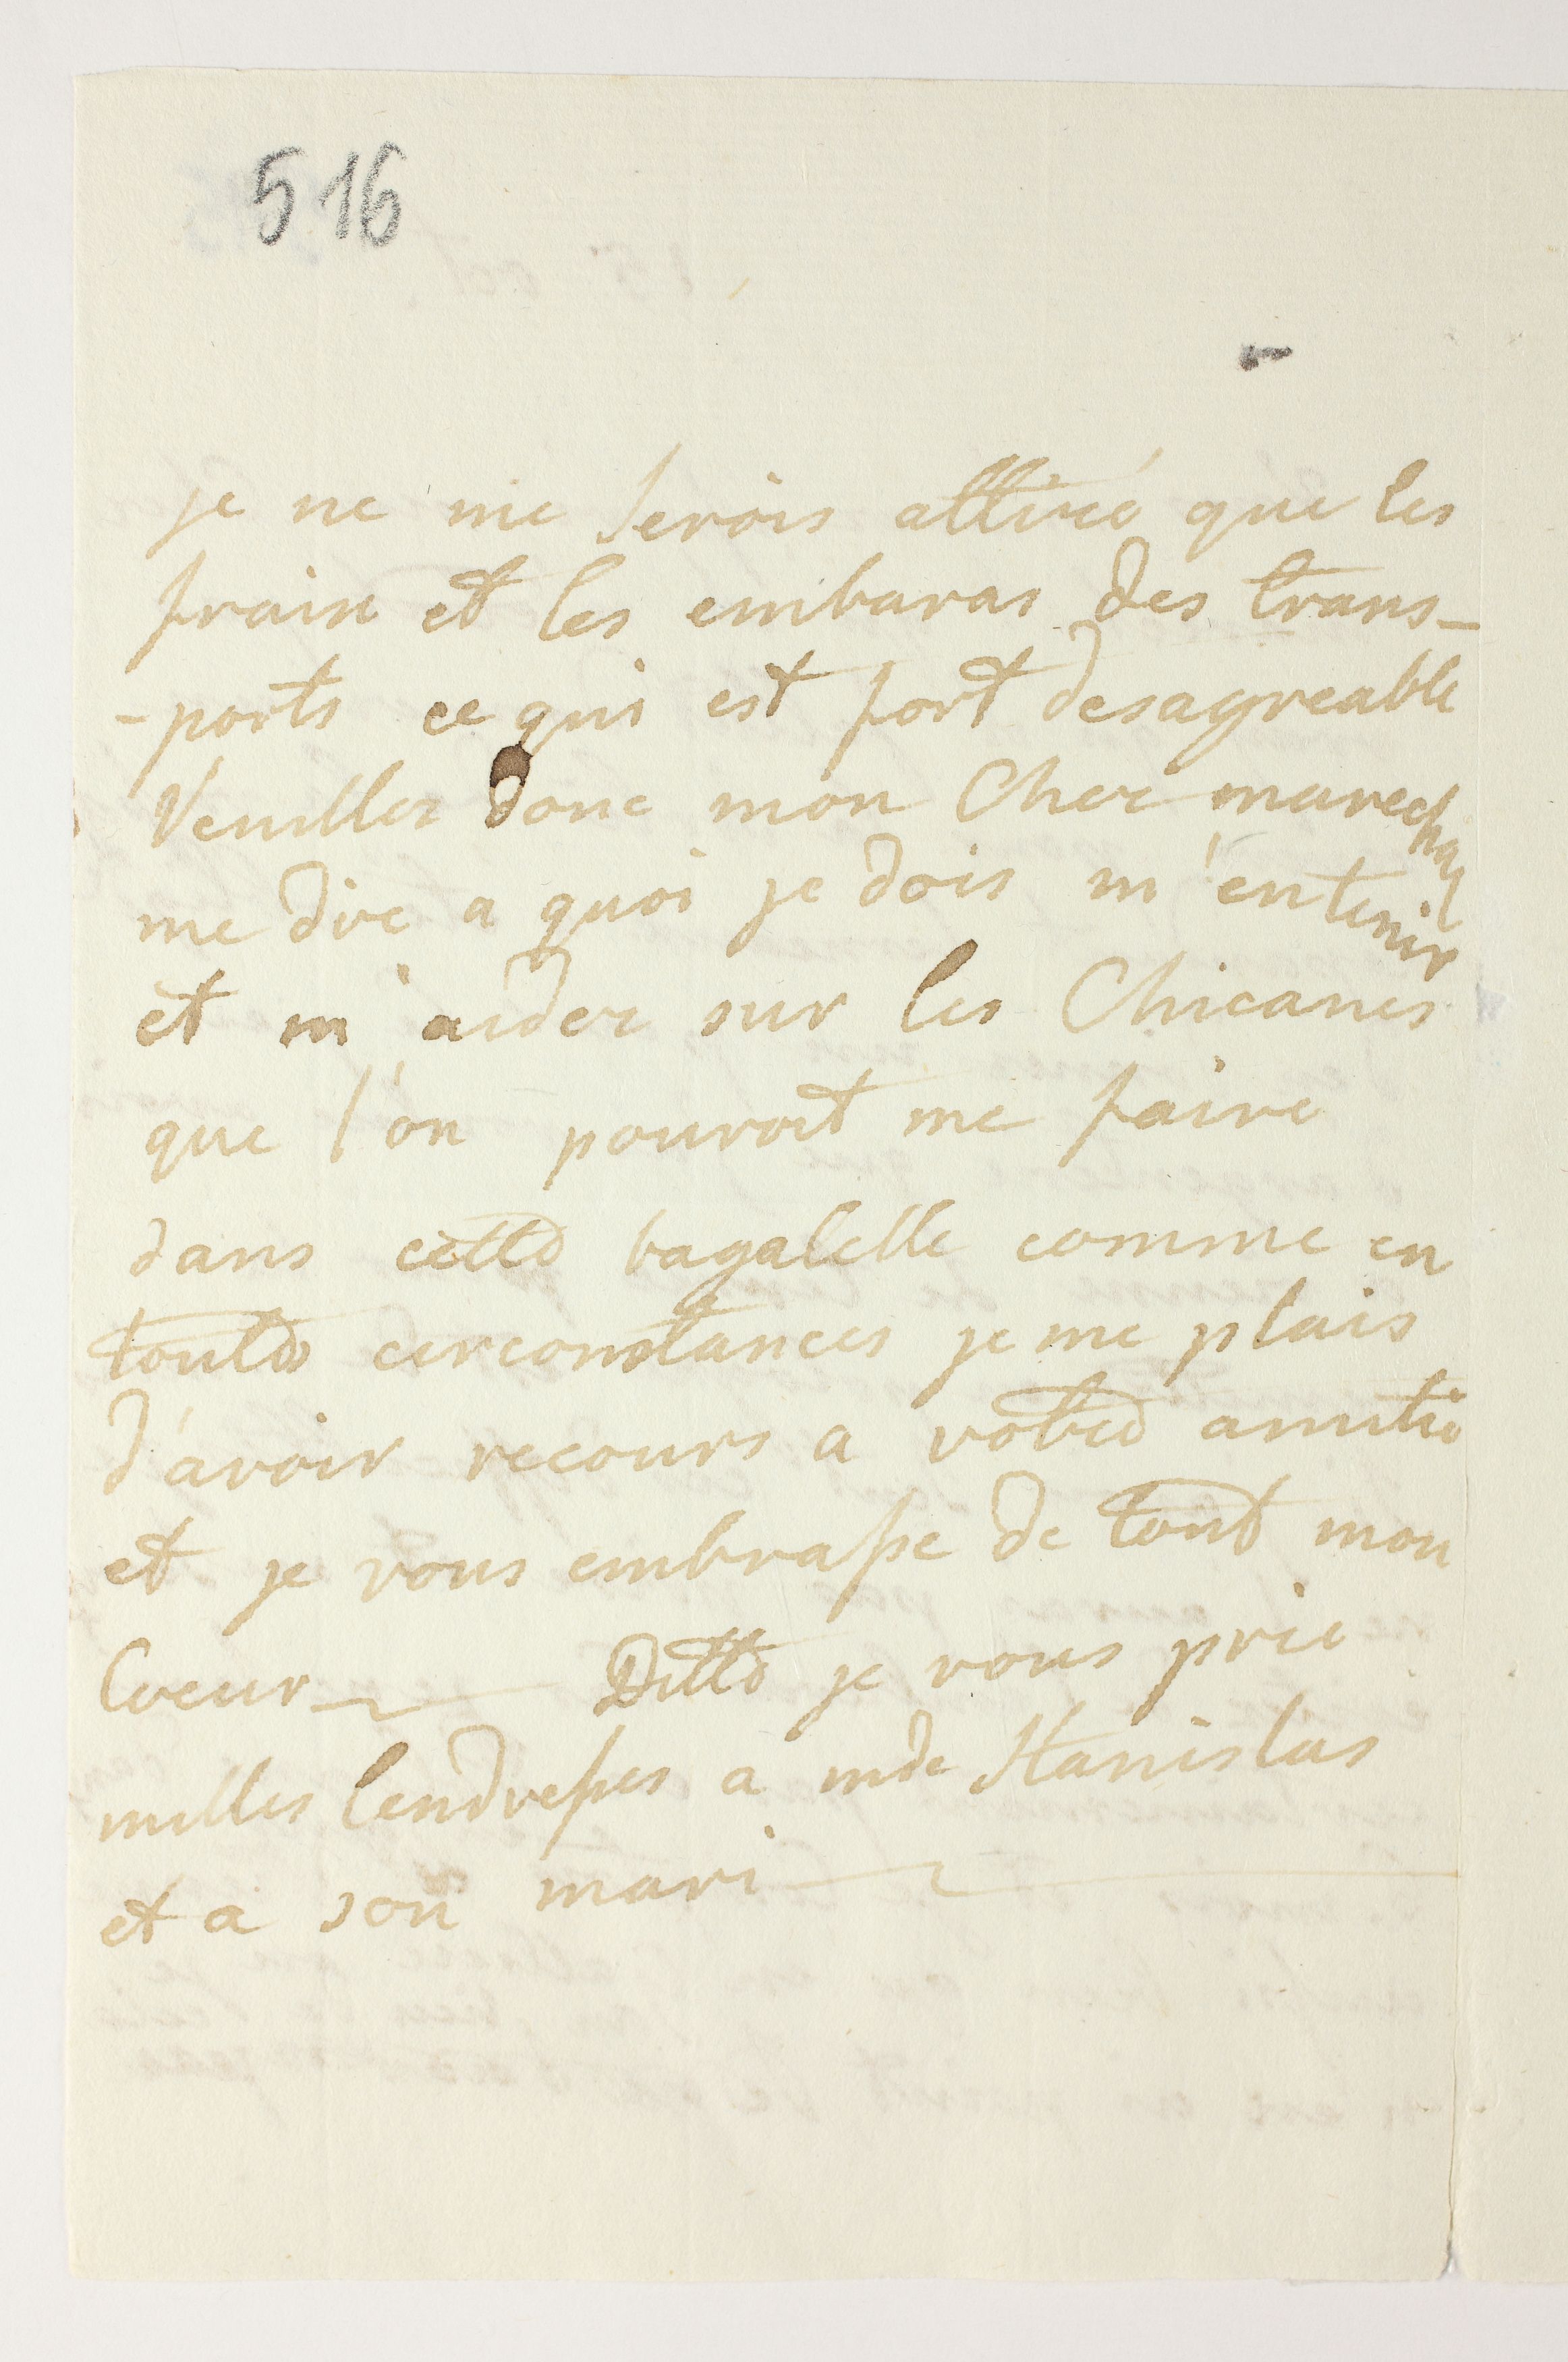 516
je ne me serois attiré que les
frais et les embaras des trans-
-ports ce qui est fort desagreable
Veuillez donc mon Cher marechal
me dire a quoi je dois m'en tenir
et m'aider sur les Chicanes
que l'on pouroit me faire
dans cette bagatelle comme en
toutes circonstances je me plais
d'avoir recours a votre amitié
et je vous embrasse de tout mon
Coeur Ditte je vous prie
milles tendresses a mde Stanislas
et a son mari